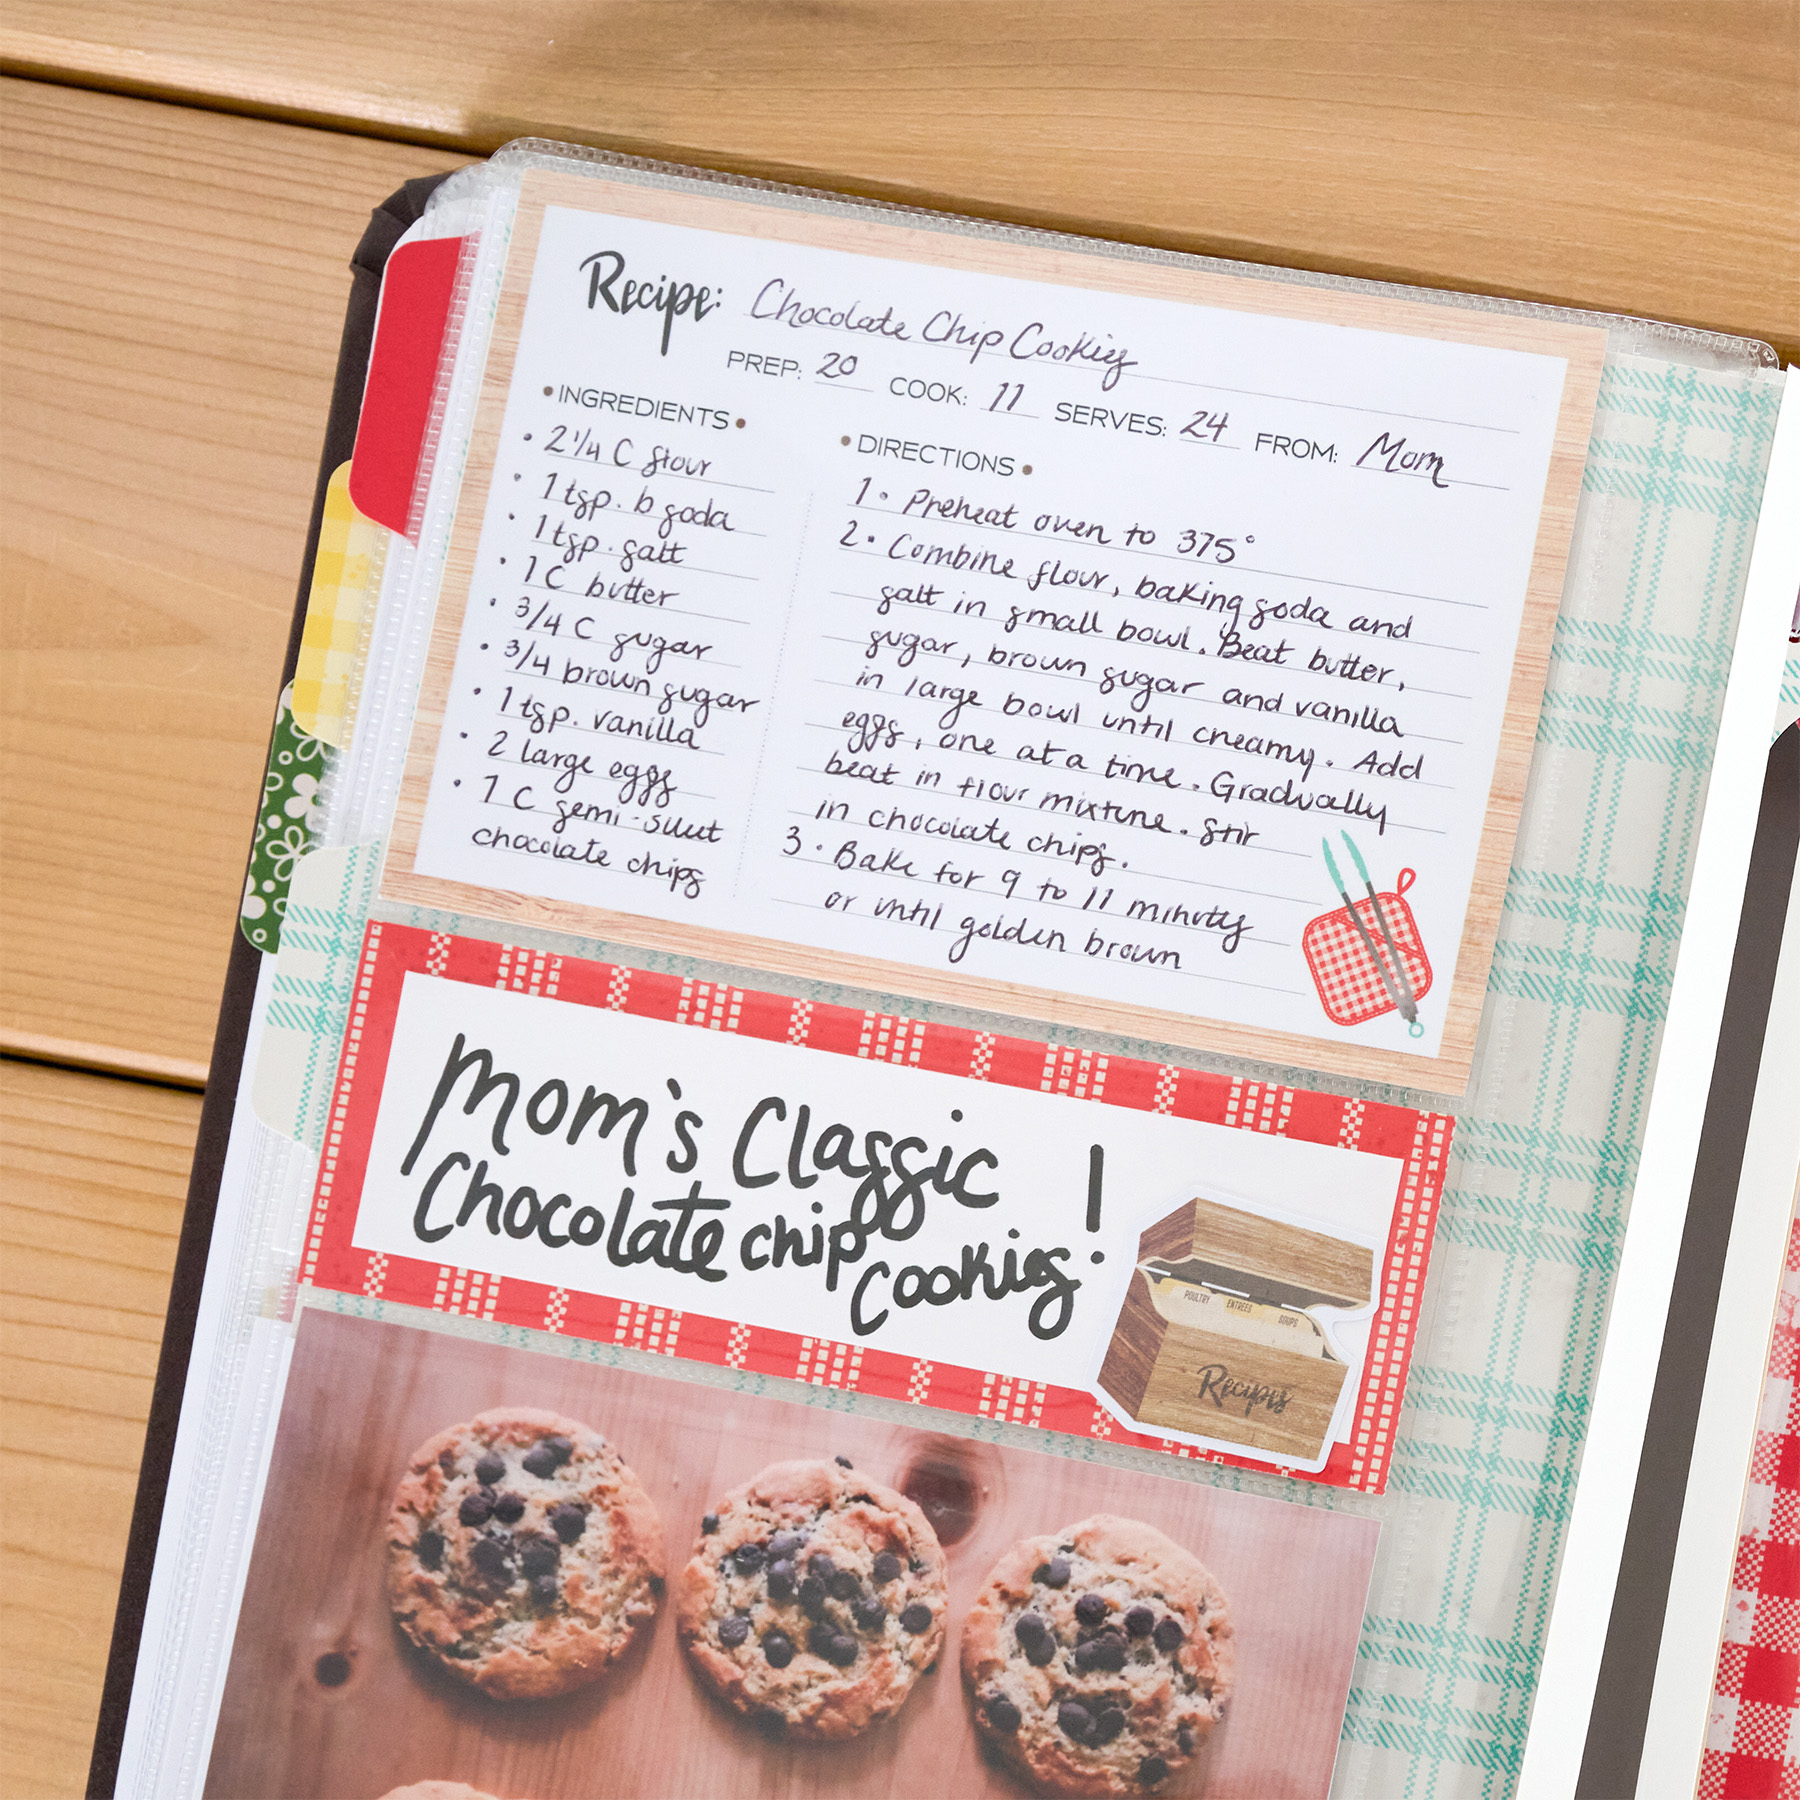 Recipe: Chocolate Chip Cookies
PREP: 20 COOK: 11 SERVES: 24 FROM: Mom
• INGREDIENTS •
• 2 1/4 C flour
• 1 tsp. b soda
• 1 tsp. salt
• 1 C butter
• 3/4 C sugar
• 3/4 brown sugar
• 1 tsp. vanilla
• 2 large eggs
• 1 C semi-sweet
chocolate chips
• DIRECTIONS •
1. Preheat oven to 375°
2. Combine flour, baking soda and
salt in small bowl. Beat butter,
sugar, brown sugar and vanilla
in large bowl until creamy. Add
eggs, one at a time. Gradually
beat in flour mixture. Stir
in chocolate chips.
3. Bake for 9 to 11 minutes
or until golden brown
Mom's Classic
Chocolate chip
cookies!
POULTRY ENTREES SOUPS
Recipes